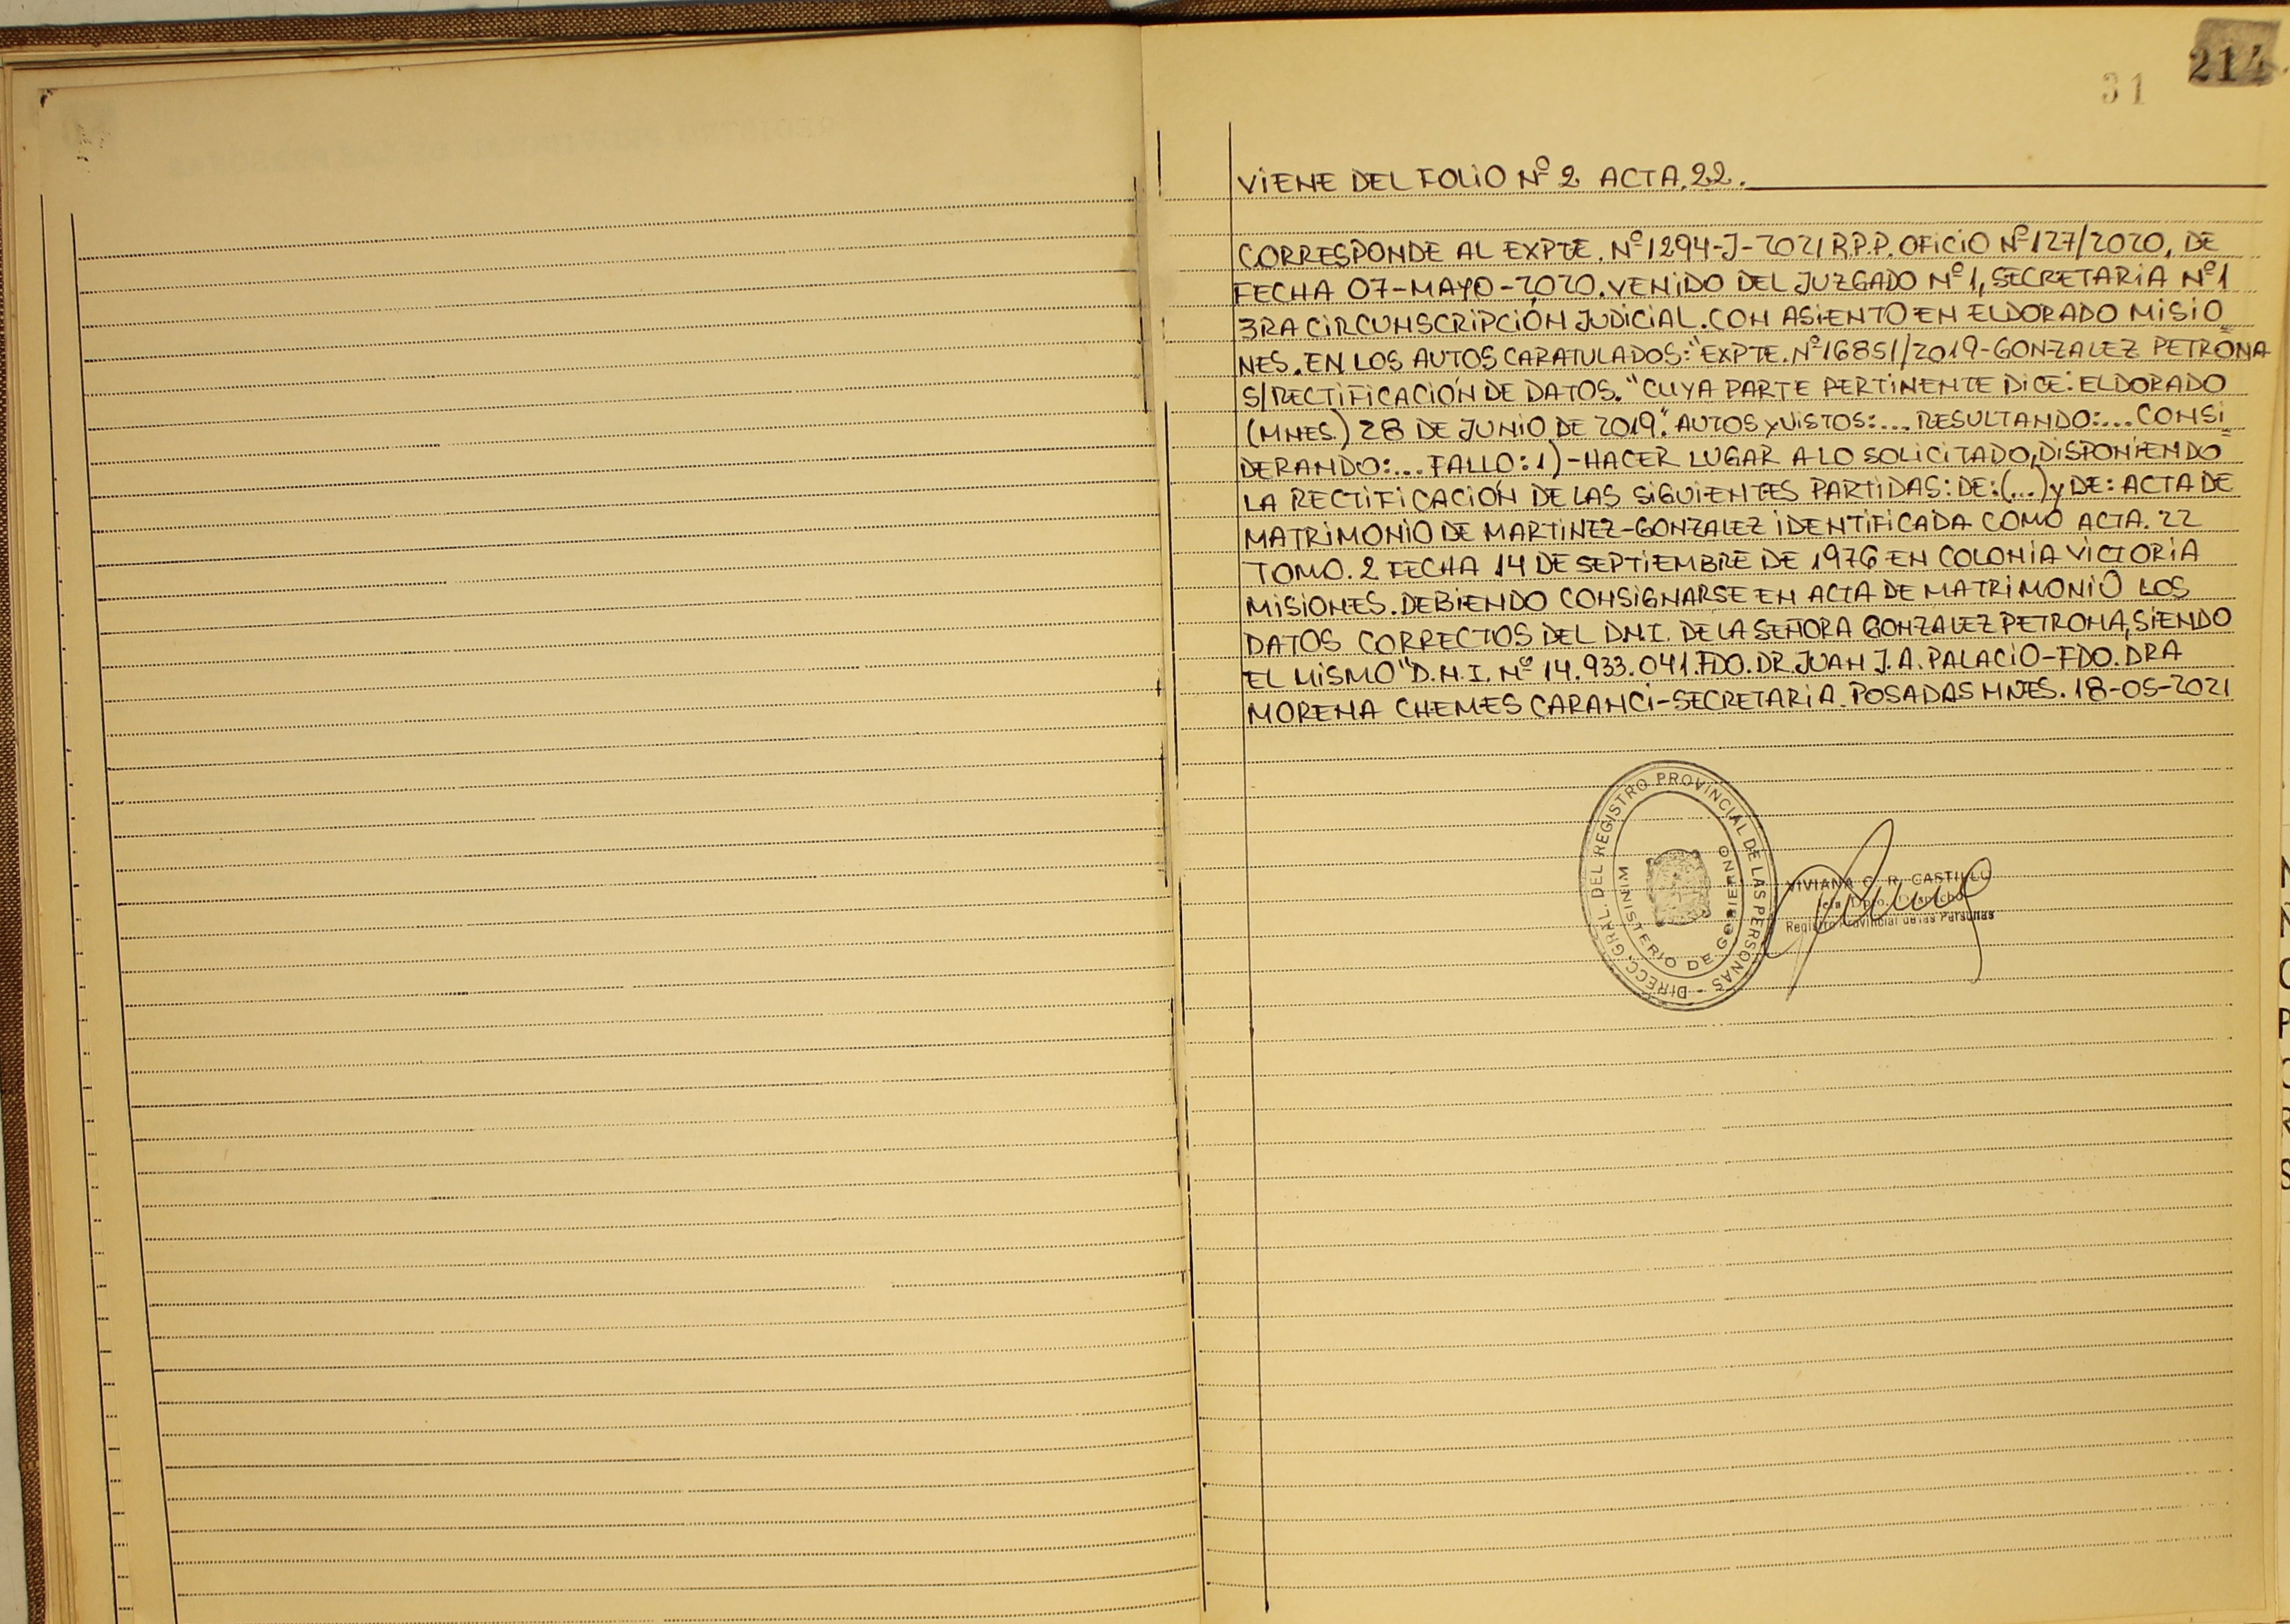 214
31
VIENE DEL FOLIO Nº 2 ACTA.22.
CORRESPONDE AL EXPTE. Nº1294-J-2021 R.P.P. OFICIO Nº127/2020, DE
FECHA 07-MAYO-2020. VENIDO DEL JUZGADO Nº1, SECRETARIA Nº1
3RA CIRCUNSCRIPCIÓN JUDICIAL. CON ASIENTO EN ELDORADO MISIO=
NES. EN LOS AUTOS CARATULADOS: "EXPTE. Nº16851/2019-GONZALEZ PETRONA
S/RECTIFICACIÓN DE DATOS." CUYA PARTE PERTINENTE DICE: ELDORADO
(MNES.) 28 DE JUNIO DE 2019". AUTOS y VISTOS:... RESULTANDO:... CONSI=
DERANDO:... FALLO: 1)-HACER LUGAR A LO SOLICITADO, DISPONIENDO
LA RECTIFICACIÓN DE LAS SIGUIENTES PARTIDAS: DE:(...) y DE: ACTA DE
MATRIMONIO DE MARTINEZ-GONZALEZ IDENTIFICADA COMO ACTA. 22
TOMO. 2 FECHA 14 DE SEPTIEMBRE DE 1976 EN COLONIA VICTORIA
MISIONES. DEBIENDO CONSIGNARSE EN ACTA DE MATRIMONIO LOS
DATOS CORRECTOS DEL D.N.I. DE LA SEÑORA GONZALEZ PETRONA, SIENDO
EL MISMO "D.N.I. Nº 14.933.041. FDO. DR. JUAN J. A. PALACIO-FDO. DRA
MORENA CHEMES CARANCI-SECRETARIA. POSADAS MNES. 18-05-2021
DIRECC. GRAL. DEL REGISTRO PROVINCIAL DE LAS PERSONAS -
MINISTERIO DE GOBIERNO
VIVIANA C. R. CASTILLO
Registro Provincial de las Personas